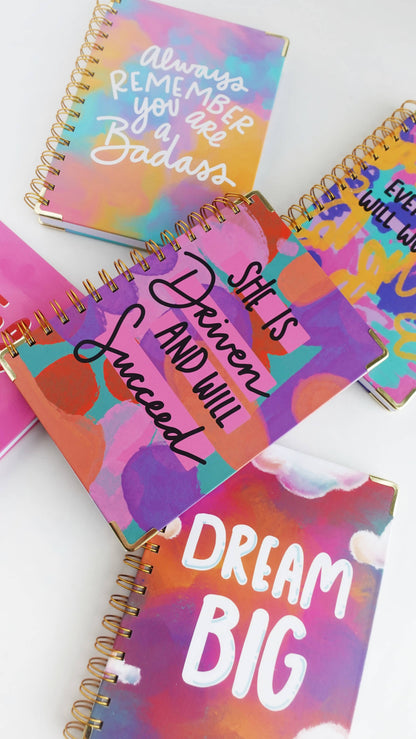 Always
REMEMBER
you are
a
Badass
SHE IS
Driven
AND WILL
Succeed
WILL W
DREAM
BIG